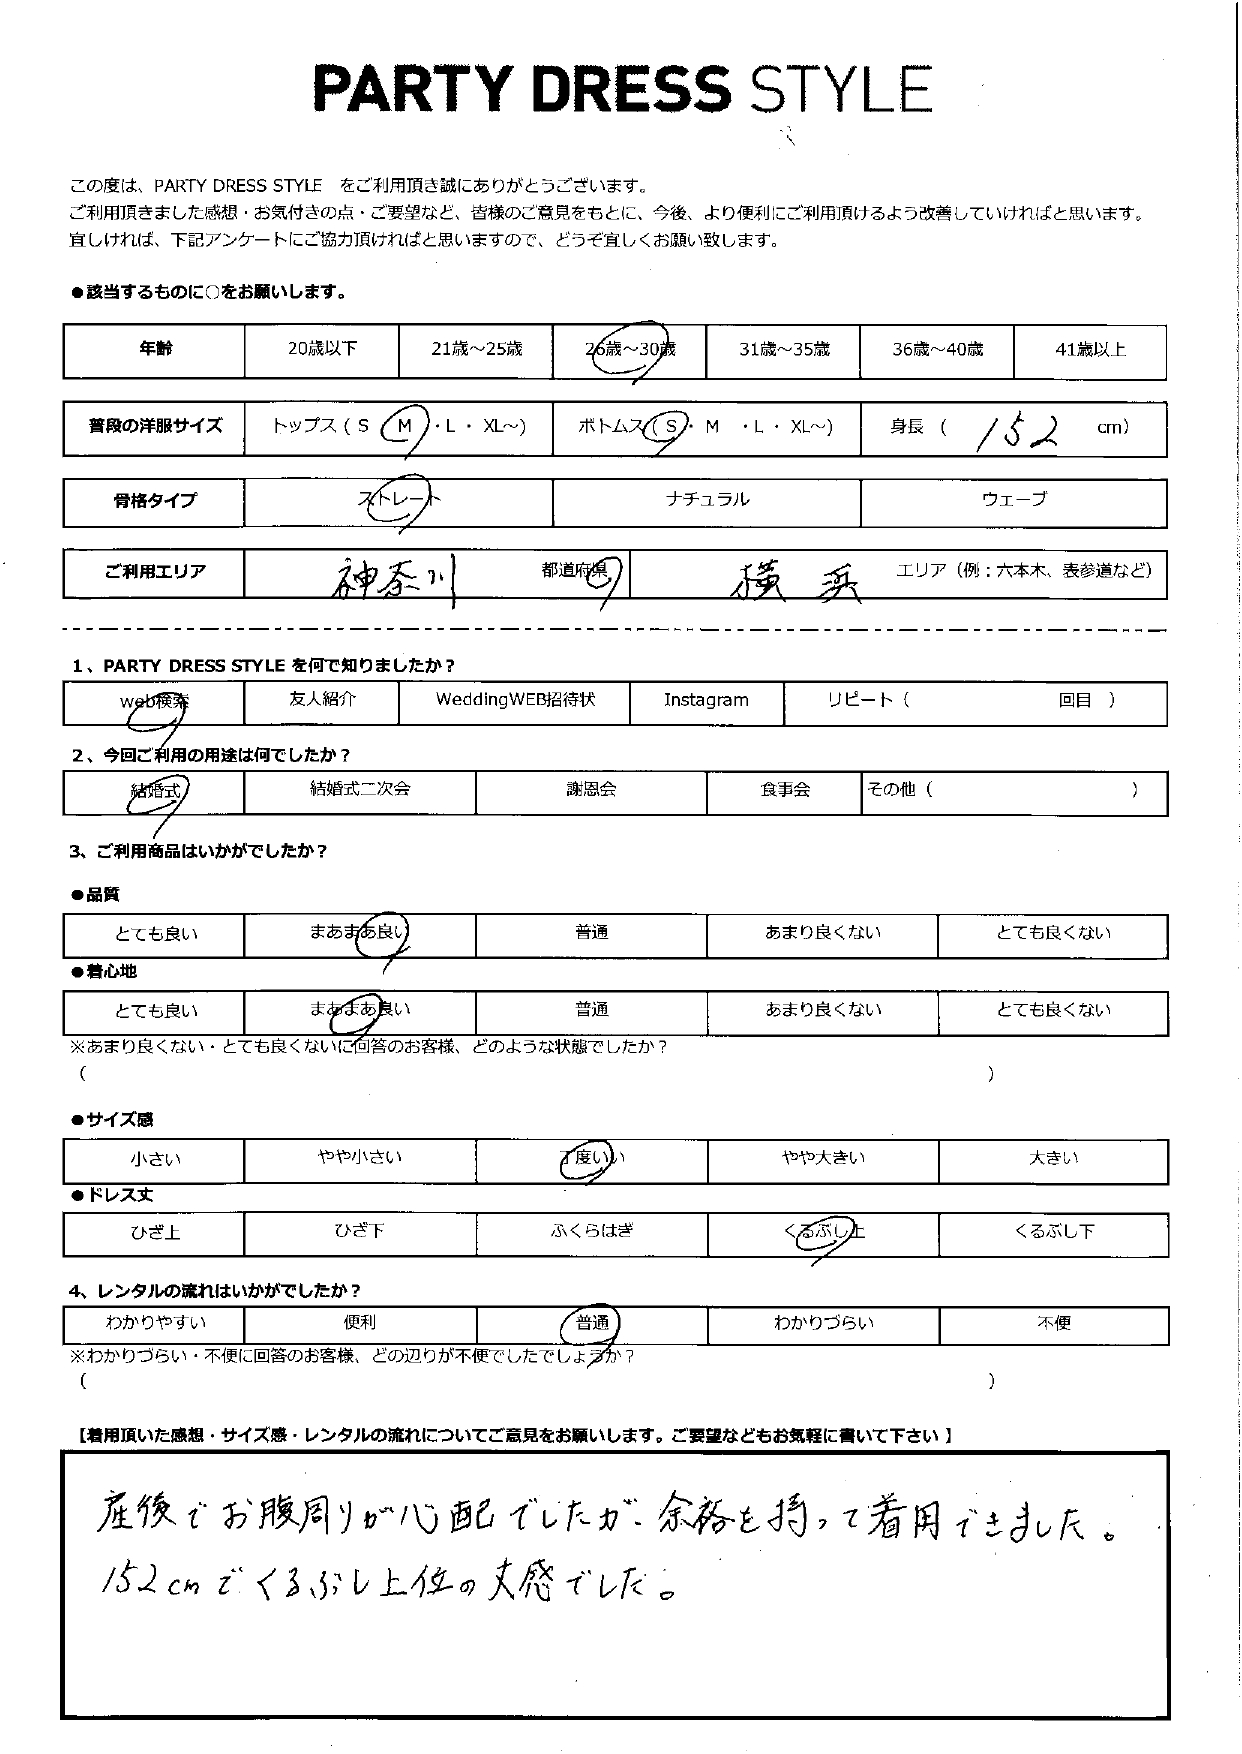 PARTY DRESS STYLE
この度は、PARTY DRESS STYLE をご利用頂き誠にありがとうございます。
ご利用頂きました感想・お気付きの点・ご要望など、皆様のご意見をもとに、今後、より便利にご利用頂けるよう改善していければと思います。
宜しければ、下記アンケートにご協力頂ければと思いますので、どうぞ宜しくお願い致します。
●該当するものに○をお願いします。
年齢 20歳以下 21歳～25歳 26歳～30歳 31歳～35歳 36歳～40歳 41歳以上
普段の洋服サイズ トップス ( S ・ M ・L ・ XL～) ボトムス ( S ・ M ・L ・ XL～) 身長 ( 152 cm)
骨格タイプ ストレート ナチュラル ウェーブ
ご利用エリア 神奈川 都道府県 横浜 エリア（例：六本木、表参道など）
1、PARTY DRESS STYLE を何で知りましたか？
web検索 友人紹介 WeddingWEB招待状 Instagram リピート（ 回目 ）
2、今回ご利用の用途は何でしたか？
結婚式 結婚式二次会 謝恩会 食事会 その他（ ）
3、ご利用商品はいかがでしたか？
●品質
とても良い まあまあ良い 普通 あまり良くない とても良くない
●着心地
とても良い まあまあ良い 普通 あまり良くない とても良くない
※あまり良くない・とても良くないに回答のお客様、どのような状態でしたか？
（ ）
●サイズ感
小さい やや小さい 丁度いい やや大きい 大きい
●ドレス丈
ひざ上 ひざ下 ふくらはぎ くるぶし上 くるぶし下
4、レンタルの流れはいかがでしたか？
わかりやすい 便利 普通 わかりづらい 不便
※わかりづらい・不便に回答のお客様、どの辺りが不便でしたでしょうか？
（ ）
【着用頂いた感想・サイズ感・レンタルの流れについてご意見をお願いします。ご要望などもお気軽に書いて下さい 】
産後でお腹周りが心配でしたが、余裕を持って着用できました。
152cmでくるぶし上位の丈感でした。